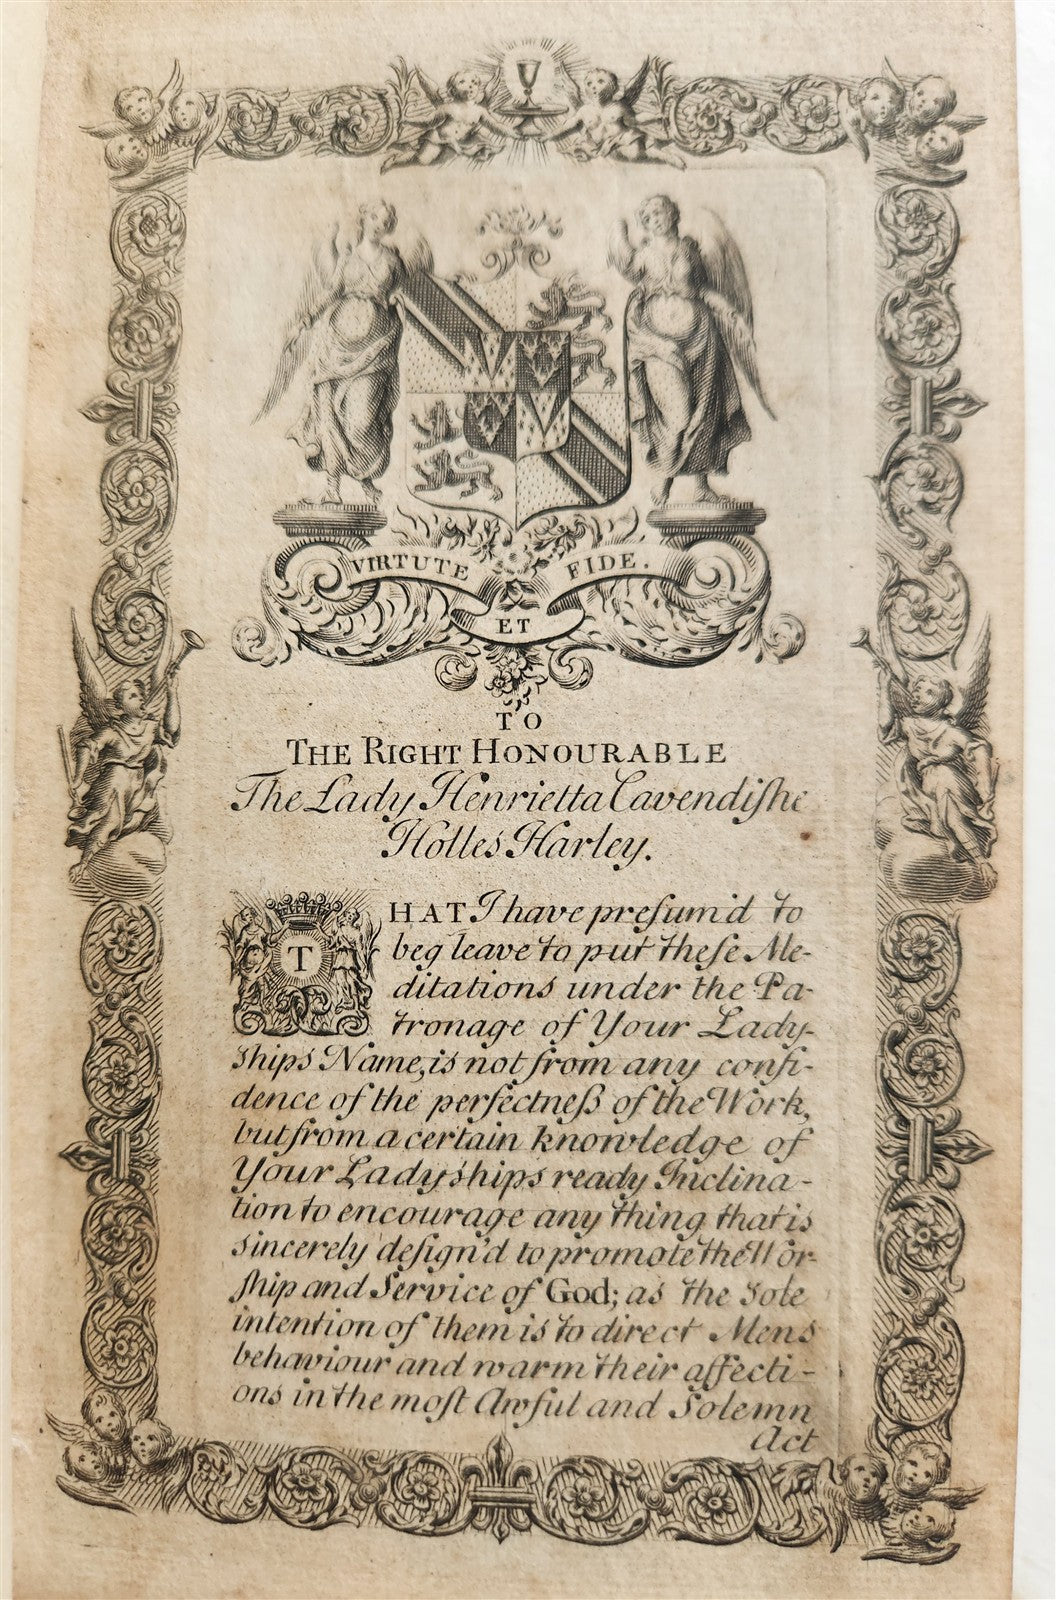 VIRTUTE FIDE.
ET
TO
THE RIGHT HONOURABLE
The Lady Henrietta Cavendiſhe
Holles Harley.
THAT I have preſum'd to
beg leave to put theſe Me-
ditations under the Pa-
tronage of Your Lady-
ships Name, is not from any confi-
dence of the perfectneſs of the Work,
but from a certain knowledge of
Your Ladyships ready Inclina-
tion to encourage any thing that is
sincerely deſign'd to promote the Wor-
ſhip and Service of God; as the sole
intention of them is to direct Mens
behaviour and warm their affecti-
ons in the moſt Awful and Solemn
Act